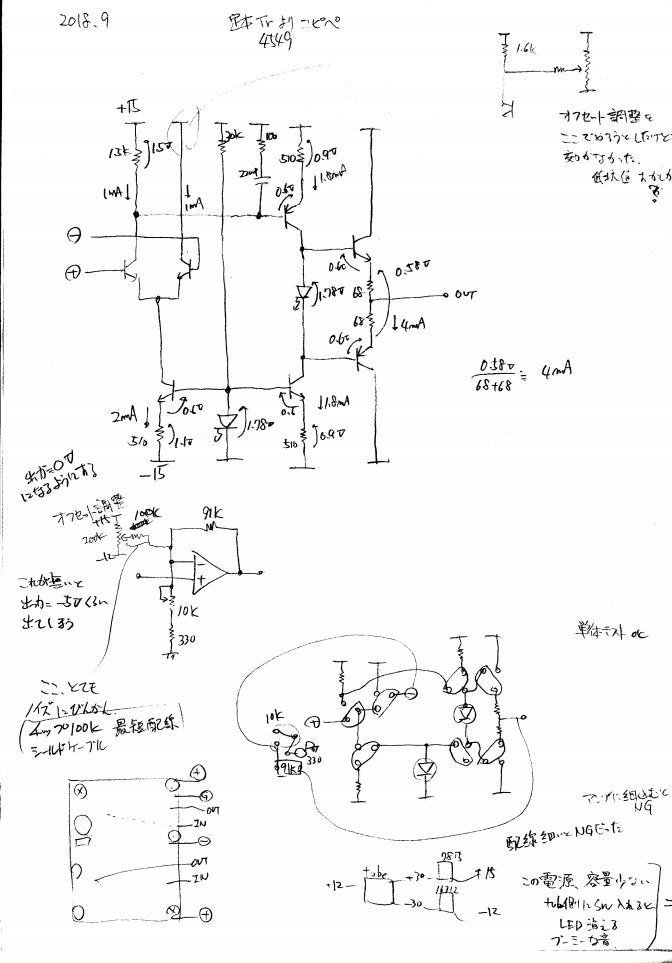 2018.9
定本Trよりコピペ
4549
1.6k
オフセット調整を
ここでやろうとしたけど
効かなかった.
抵抗値 おかしか
?
+15
1.5k
1.5V
1mA
1mA
30k
100
510
0.9V
0.6V
1.8mA
⊖
⊕
0.6V
0.58V
1.78V
68
OUT
68
4mA
0.6V
0.58V
68+68
≒ 4mA
2mA
0.6V
0.6
1.8mA
510
1.1V
1.78V
510
0.9V
-15
出力=0V
になるようにする
オフセット調整
+15
100K
91K
200K
-12
-
+
これが無いと
出力=-5Vくらい
出てしまう
10K
330
単体テスト OK
ここ、とても
ノイズにびんかん.
チップ100k 最短配線
シールドケーブル
10K
330
91K
⊕
⊖
⊕
OUT
IN
⊖
OUT
IN
⊕
アンプに組込むと
NG
配線細いとNGだった
tube
+12
+30
-30
7815
+15
-12
この電源、容量少ない
LED 消える
ブーミーな音